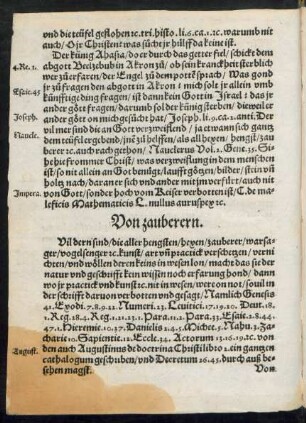 vnd die teüfel geflohen ꝛc. tri. histo. li. 6. ca. 1. ꝛc. warumb nit
auch / O jr Christen was suͤcht jr hülff da keine ist.
Der künig Ahasia / do er durch das getter fiel / schickt dem
4. Re. 1.
abgott Beelzebub in Akron zů / ob sein kranckheit sterblich
wer zů erfaren / der Engel zů dem pottẽ sprach / Was gond
jr zů fragen den abgott in Akron / mich solt jr allein vmb
Esaie. 45
künfftige ding fragen / ist dann kein Gott in Israel / das jr
ander gött fragen / darumb sol der künig sterben / die weil er
Joseph.
ander gött on mich gesůcht hat / Joseph. li. 9. ca. 2. anti. Der
vil mer sind die an Gott verzweiflend / ja etwann sich gantz
dem teüfel ergebend / jnẽ zů helffen / als all hexen / hengst / zau
Naucle.
berer ꝛc. auch rach gethon / Nauclerus Vol. 2. Gene. 35. Si
he hie frommer Christ / was verzweiflung in dem menschen
ist / so nit allein an Gott benügt / laufft götzen / bilder / teüf=
feln noch / darane er sich vnd ander mit jm verfürt / auch nit
Impera.
von Gott / sonder hoch vom Keiser verbotten ist / C. de ma=
leficis Mathematicis L. nullus auruspex ꝛc.
Von zauberern.
Vil dern sind / die aller hengsten / hexen / zauberer / warsa=
ger / vogelsenger ꝛc. kunst / art vñ practick verschetzen / verni
chten / vnd wöllen der on keins in wesen sein / macht das sie der
natur vnd geschrifft kein wissen noch erfarung hond / dann
wo jr practick vnd kunst ꝛc. nit in wesen / wer on not / souil in
der schrifft daruon verbotten vnd gesagt / Namlich Genesis
41. Exodi. 7. 8. 9. 22. Numeri. 23. Leuitici. 17. 19. 20. Deut. 18.
1. Reg. 18. 4. Reg. 1. 21. 23. 1. Para. 11. 2. Para. 33. Esaie. 1. 8. 44.
47. 1. Hieremie. 10. 37. Danielis 2. 4. 5. Miche. 5. Nahu. 3. Za=
charie 10. Sapientie. 12. Eccle. 34. Actorum 13. 16. 19. ꝛc. von
August.
den auch Augustinus de doctrina Christi libro 2. ein gantzen
cathalogum geschuben / vnd Decretum 26. 45. durch auß be=
sehen magst.
Von